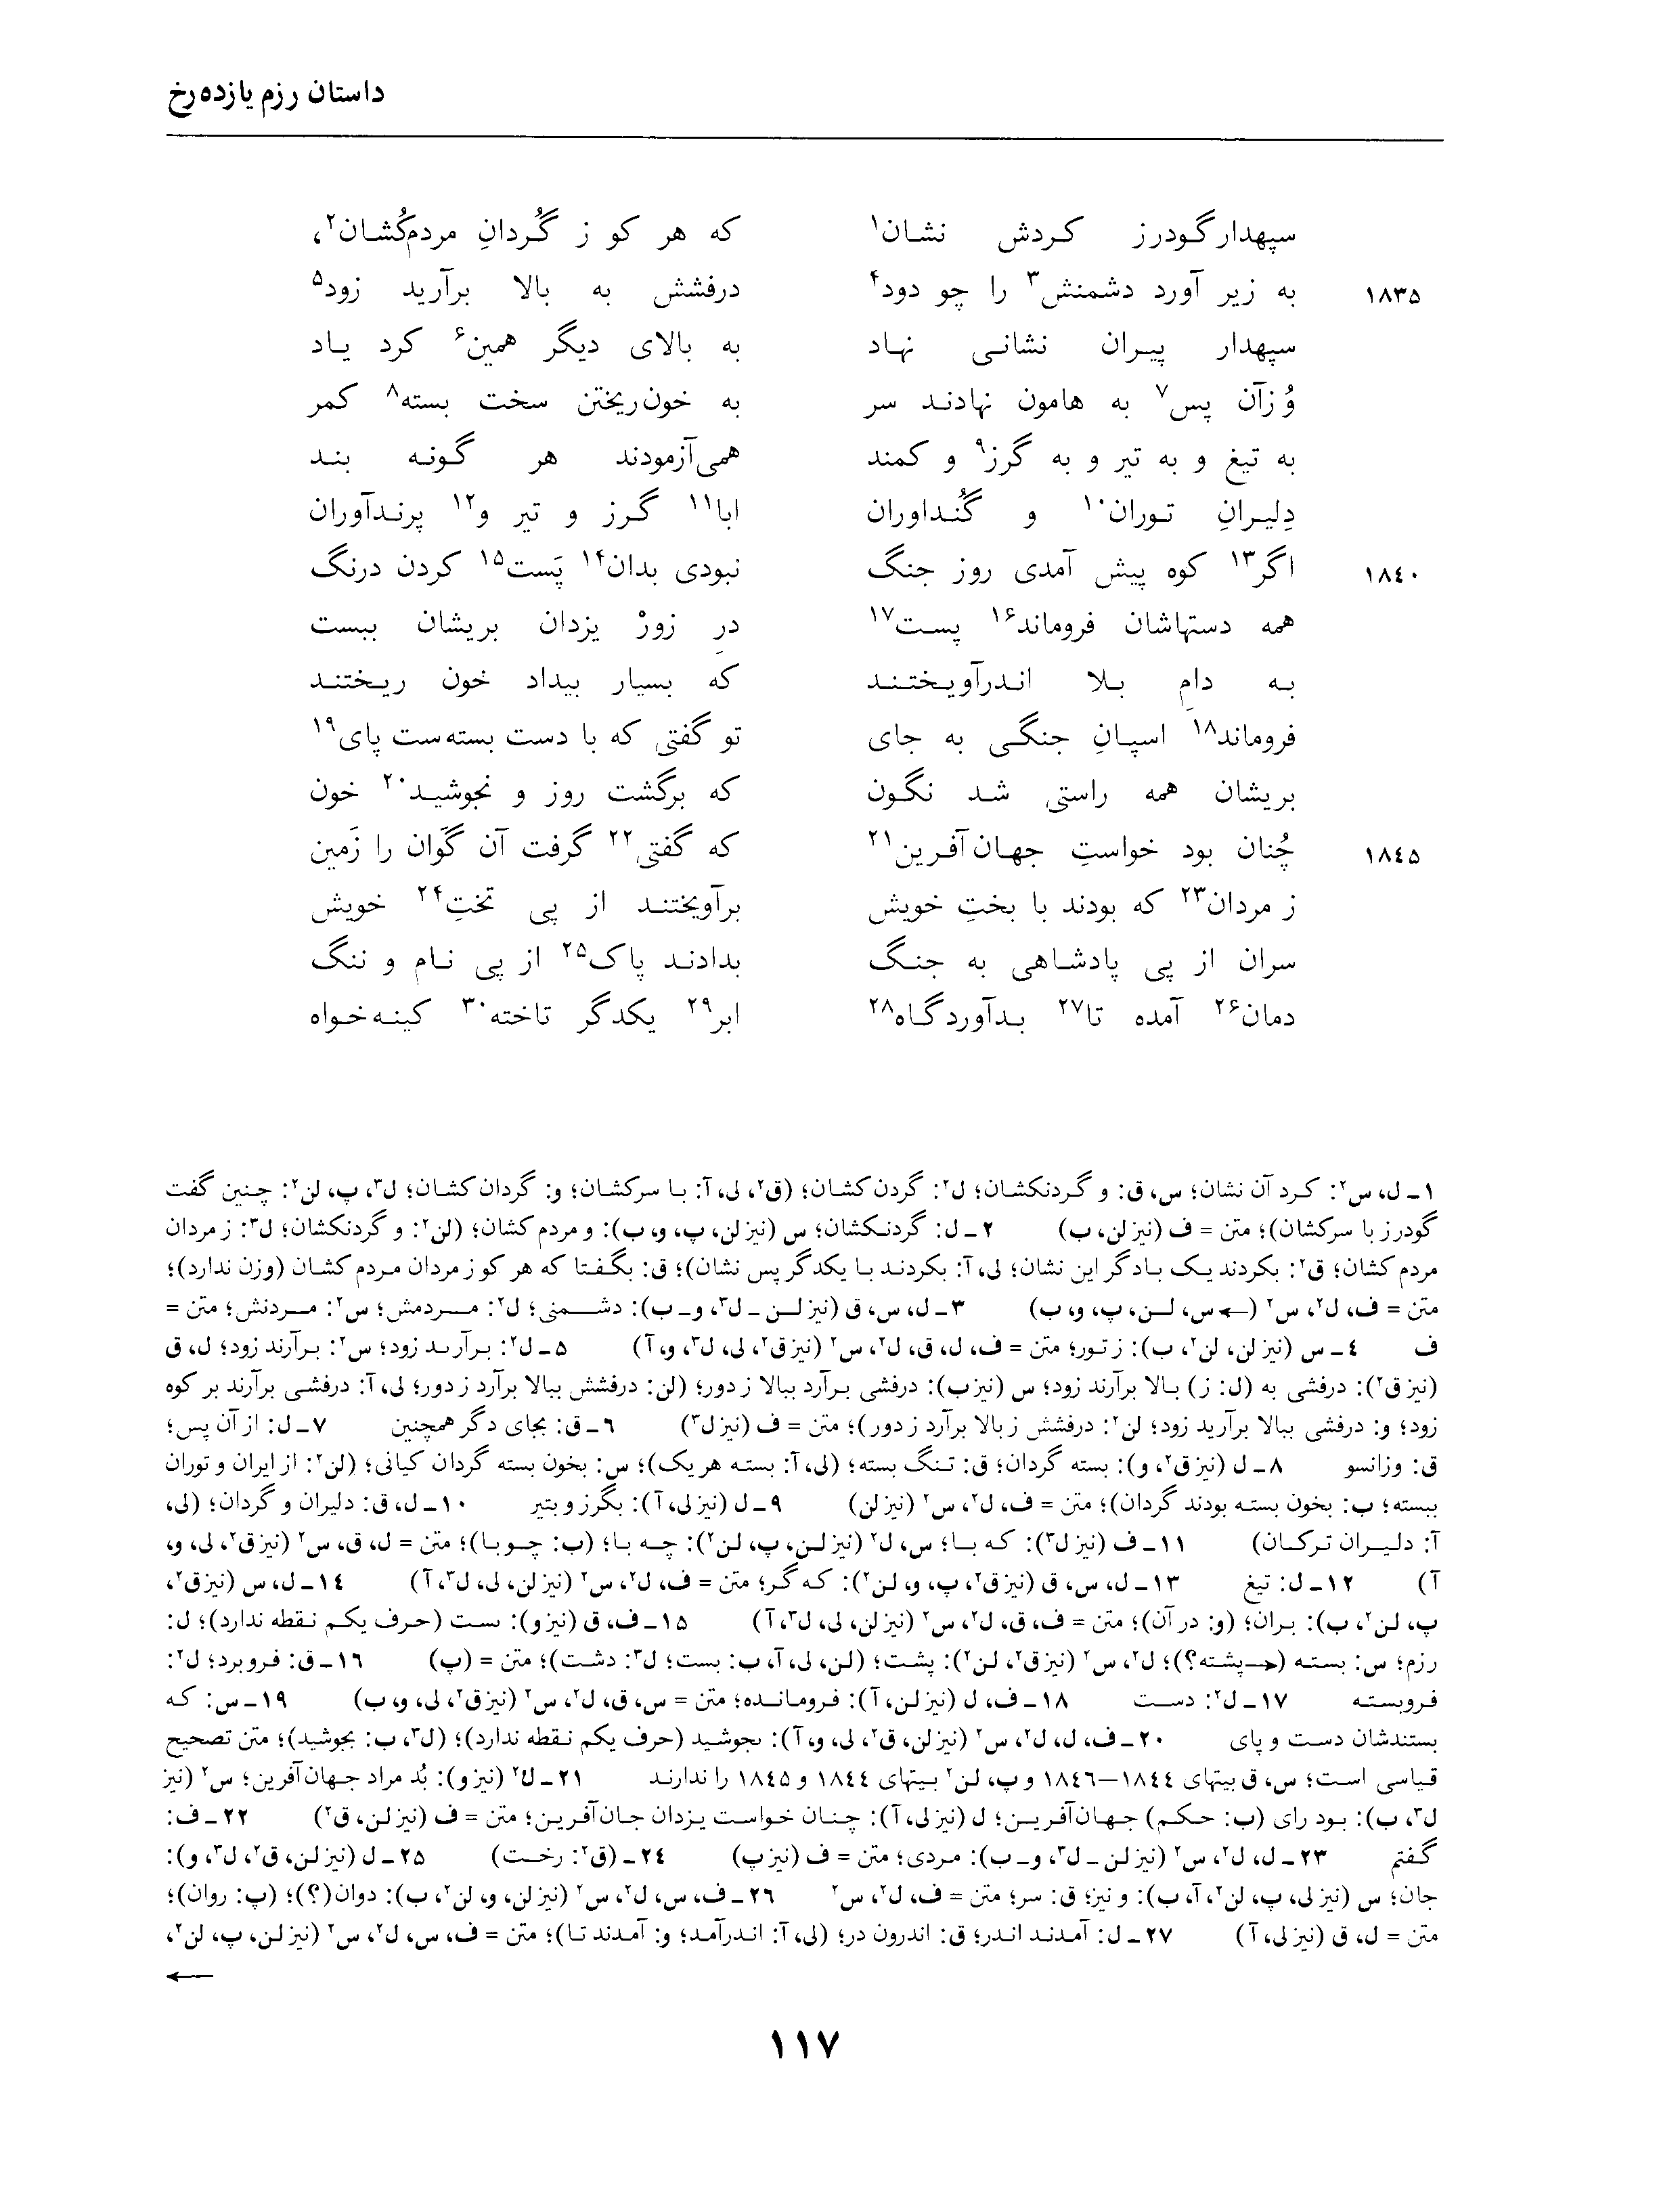 داستان رزم یازده‌رخ
سپهدار گودرز کردش نشان۱ که هر کو ز گُردانِ مردم‌کُشان۲،
۱۸۳۵ به زیر آورد دشمنش۳ را چو دود۴ درفشش به بالا برآرید زود۵
سپهدار پیران نشانی نهاد به بالای دیگر همین۶ کرد یاد
وُزآن پس۷ به هامون نهادند سر به خون‌ریختن سخت بسته۸ کمر
به تیغ و به تیر و به گرز۹ و کمند همی‌آزمودند هر گونه بند
دِلیرانِ توران۱۰ و گُنداوران ابا۱۱ گرز و تیر و۱۲ پرندآوران
۱۸۴۰ اگر۱۳ کوه پیش آمدی روز جنگ نبودی بدان۱۴ پَست۱۵ کردن درنگ
همه دستهاشان فروماند۱۶ پست۱۷ درِ زورْ یزدان بریشان ببست
به دامِ بلا اندرآویختند که بسیار بیداد خون ریختند
فروماند۱۸ اسپانِ جنگی به جای تو گفتی که با دست بسته‌ست پای۱۹
بریشان همه راستی شد نگون که برگشت روز و نجوشید۲۰ خون
۱۸۴۵ چُنان بود خواستِ جهان‌آفرین۲۱ که گفتی۲۲ گرفت آن گَوان را زَمین
ز مردان۲۳ که بودند با بختِ خویش برآویختند از پی تختِ۲۴ خویش
سران از پی پادشاهی به جنگ بدادند پاک۲۵ از پی نام و ننگ
دمان۲۶ آمده تا۲۷ بدآوردگاه۲۸ ابر۲۹ یکدگر تاخته۳۰ کینه‌خواه
۱ـ ل، س۲: کرد آن نشان؛ س، ق: و گردنکشان؛ ل۲: گردن کشان؛ (ق۲، لی، آ: با سرکشان؛ و: گردان کشان؛ ل۳، پ، لن۲: چنین گفت
گودرز با سرکشان)؛ متن = ف (نیز لن، ب) ۲ـ ل: گردنکشان؛ س (نیز لن، پ، و، ب): و مردم کشان؛ (لن۲: و گردنکشان؛ ل۳: ز مردان
مردم کشان؛ ق۲: بکردند یک بادگر این نشان؛ لی، آ: بکردند با یکدگر پس نشان)؛ ق: بگفتا که هر کو ز مردان مردم کشان (وزن ندارد)؛
متن = ف، ل۲، س۲ (← س، لن، پ، و، ب) ۳ـ ل، س، ق (نیز لن ـ ل۳، و ـ ب): دشمنی؛ ل۲: مردمش؛ س۲: مردنش؛ متن =
ف ۴ـ س (نیز لن، لن۲، ب): ز تور؛ متن = ف، ل، ق، ل۲، س۲ (نیز ق۲، لی، ل۳، و، آ) ۵ـ ل۲: برآرند زود؛ س۲: برآرند زود؛ ل، ق
(نیز ق۲): درفشی به (ل: ز) بالا برآرند زود؛ س (نیز ب): درفشی برآرد ببالا ز دور؛ (لن: درفشش ببالا برآرد ز دور؛ لی، آ: درفشی برآرند بر کوه
زود؛ و: درفشی ببالا برآرید زود؛ لن۲: درفشش ز بالا برآرد ز دور)؛ متن = ف (نیز ل۳) ۶ـ ق: بجای دگر همچنین ۷ـ ل: از آن پس؛
ق: وزانسو ۸ـ ل (نیز ق۲، و): بسته گردان؛ ق: تنگ بسته؛ (لی، آ: بسته هر یک)؛ س: بخون بسته گردان کیانی؛ (لن۲: از ایران و توران
ببسته؛ ب: بخون بسته بودند گردان)؛ متن = ف، ل۲، س۲ (نیز لن) ۹ـ ل (نیز لی، آ): بگرز و بتیر ۱۰ـ ل، ق: دلیران و گردان؛ (لی،
آ: دلیران ترکان) ۱۱ـ ف (نیز ل۳): که با؛ س، ل۲ (نیز لن، پ، لن۲): چه با؛ (ب: چو با)؛ متن = ل، ق، س۲ (نیز ق۲، لی، و،
آ) ۱۲ـ ل: تیغ ۱۳ـ ل، س، ق (نیز ق۲، پ، و، لن۲): که گر؛ متن = ف، ل۲، س۲ (نیز لن، لی، ل۳، آ) ۱۴ـ ل، س (نیز ق۲،
پ، لن۲، ب): بران؛ (و: در آن)؛ متن = ف، ق، ل۲، س۲ (نیز لن، لی، ل۳، آ) ۱۵ـ ف، ق (نیز و): ٮست (حرف یکم نقطه ندارد)؛ ل:
رزم؛ س: بسته (→ پشته؟)؛ ل۲، س۲ (نیز ق۲، لن۲): پشت؛ (لن، لی، آ، ب: بست؛ ل۳: دشت)؛ متن = (پ) ۱۶ـ ق: فروبرد؛ ل۲:
فروبسته ۱۷ـ ل۲: دست ۱۸ـ ف، ل (نیز لن، آ): فرومانده؛ متن = س، ق، ل۲، س۲ (نیز ق۲، لی، و، ب) ۱۹ـ س: که
بستندشان دست و پای ۲۰ـ ف، ل، ل۲، س۲ (نیز لن، ق۲، لی، و، آ): ٮجوشید (حرف یکم نقطه ندارد)؛ (ل۳، ب: بجوشید)؛ متن تصحیح
قیاسی است؛ س، ق بیتهای ۱۸۴۴–۱۸۴۶ و پ، لن۲ بیتهای ۱۸۴۴ و ۱۸۴۵ را ندارند ۲۱ـ ل۲ (نیز و): بُد مراد جهان‌آفرین؛ س۲ (نیز
ل۳، ب): بود رای (ب: حکم) جهان‌آفرین؛ ل (نیز لی، آ): چنان خواست یزدان جان‌آفرین؛ متن = ف (نیز لن، ق۲) ۲۲ـ ف:
گفتم ۲۳ـ ل، ل۲، س۲ (نیز لن ـ ل۳، و ـ ب): مردی؛ متن = ف (نیز پ) ۲۴ـ (ق۲: رخت) ۲۵ـ ل (نیز لن، ق۲، ل۳، و):
جان؛ س (نیز لی، پ، لن۲، آ، ب): و نیز؛ ق: سر؛ متن = ف، ل۲، س۲ ۲۶ـ ف، س، ل۲، س۲ (نیز لن، و، لن۲، ب): دوان(؟)؛ (پ: روان)؛
متن = ل، ق (نیز لی، آ) ۲۷ـ ل: آمدند اندر؛ ق: اندرون در؛ (لی، آ: اندرآمد؛ و: آمدند تا)؛ متن = ف، س، ل۲، س۲ (نیز لن، پ، لن۲،
←
۱۱۷